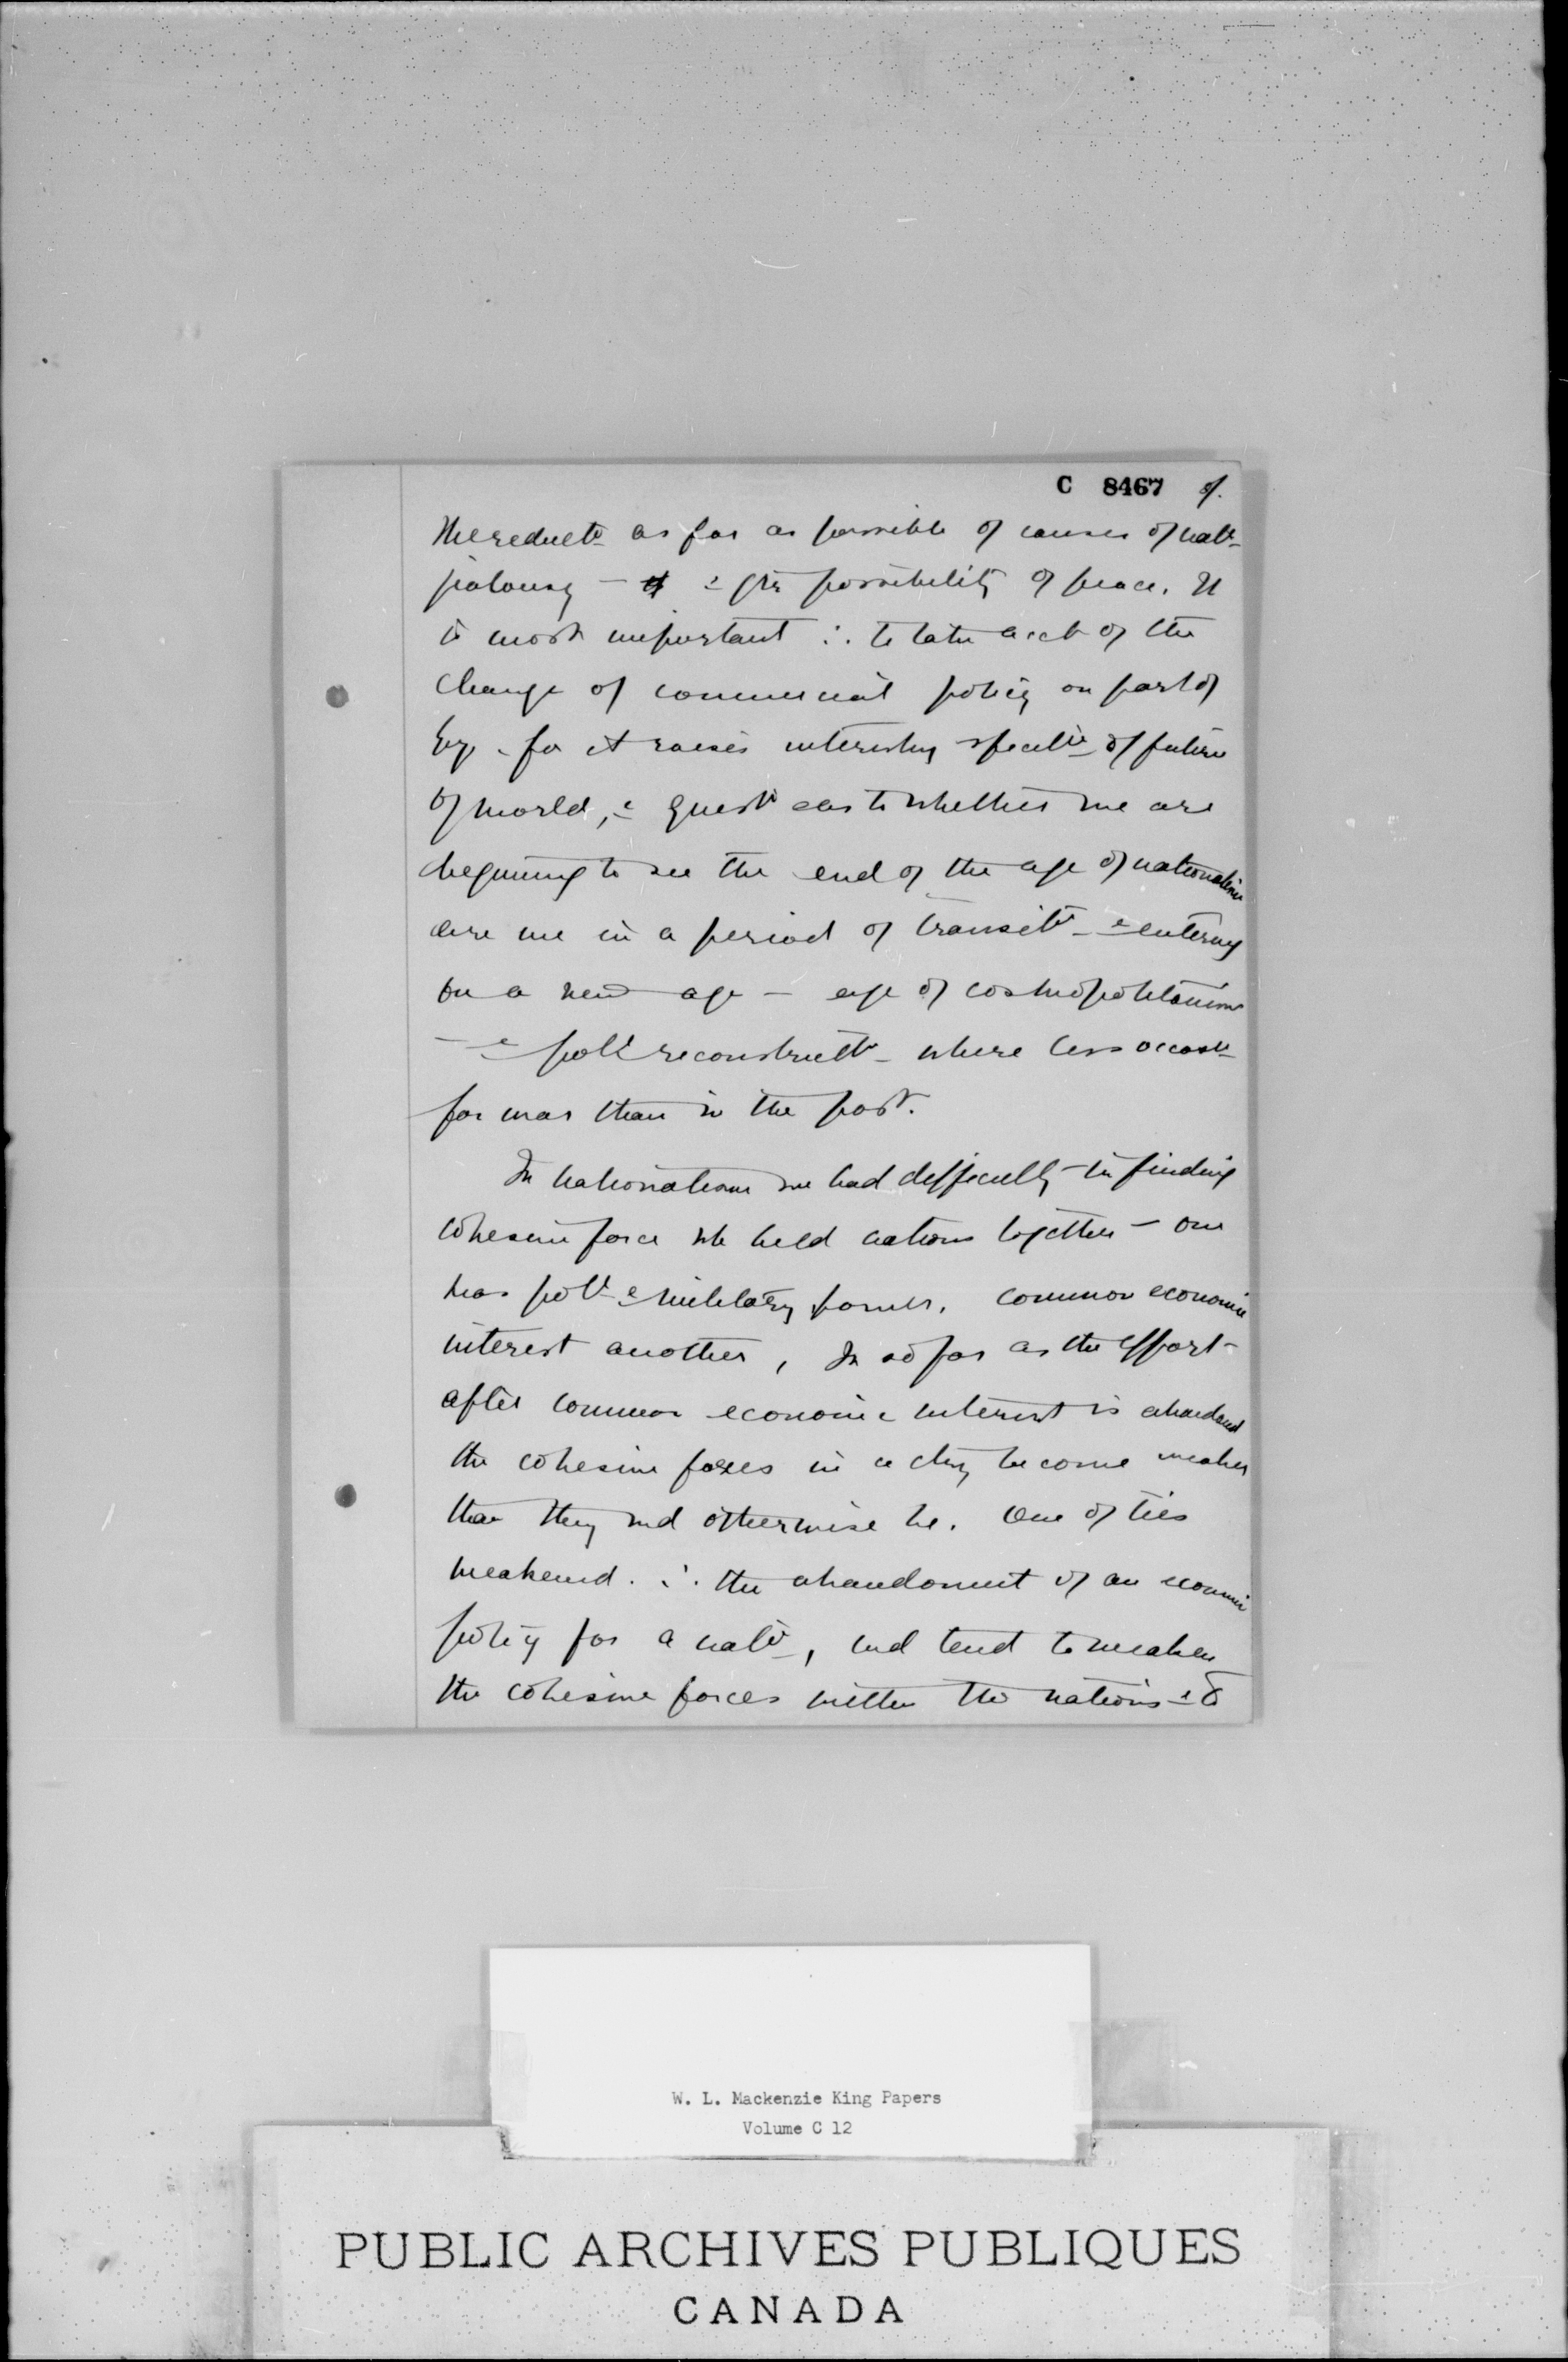 C 8467 8/.
the reductn as far as possible of causes of natl
jealousy – & gtr possibility of peace. It
is most important ∴ to take acct of the
change of commercial policy on part of
Eng. for it raises interesting speculn of future
of world, & questn as to whether we are
beginning to see the end of the age of nationalism
are we in a period of transitn & entering
on a new age – age of cosmopolitanism
– & poll reconstructn where less occasn
for war than in the past.
In nationalism we had difficulty in finding
cohesive force wh held nations together – one
was poll & military power. common economic
interest another, In so far as the effort
after common economic interest is abandoned
the cohesive forces in a cty become weaker
than they wd otherwise be. One of ties
weakened. ∴ the abandonment of an economic
policy for a natn, wd tend to weaken
the cohesive forces within the nations &
W. L. Mackenzie King Papers
Volume C 12
PUBLIC ARCHIVES PUBLIQUES
CANADA